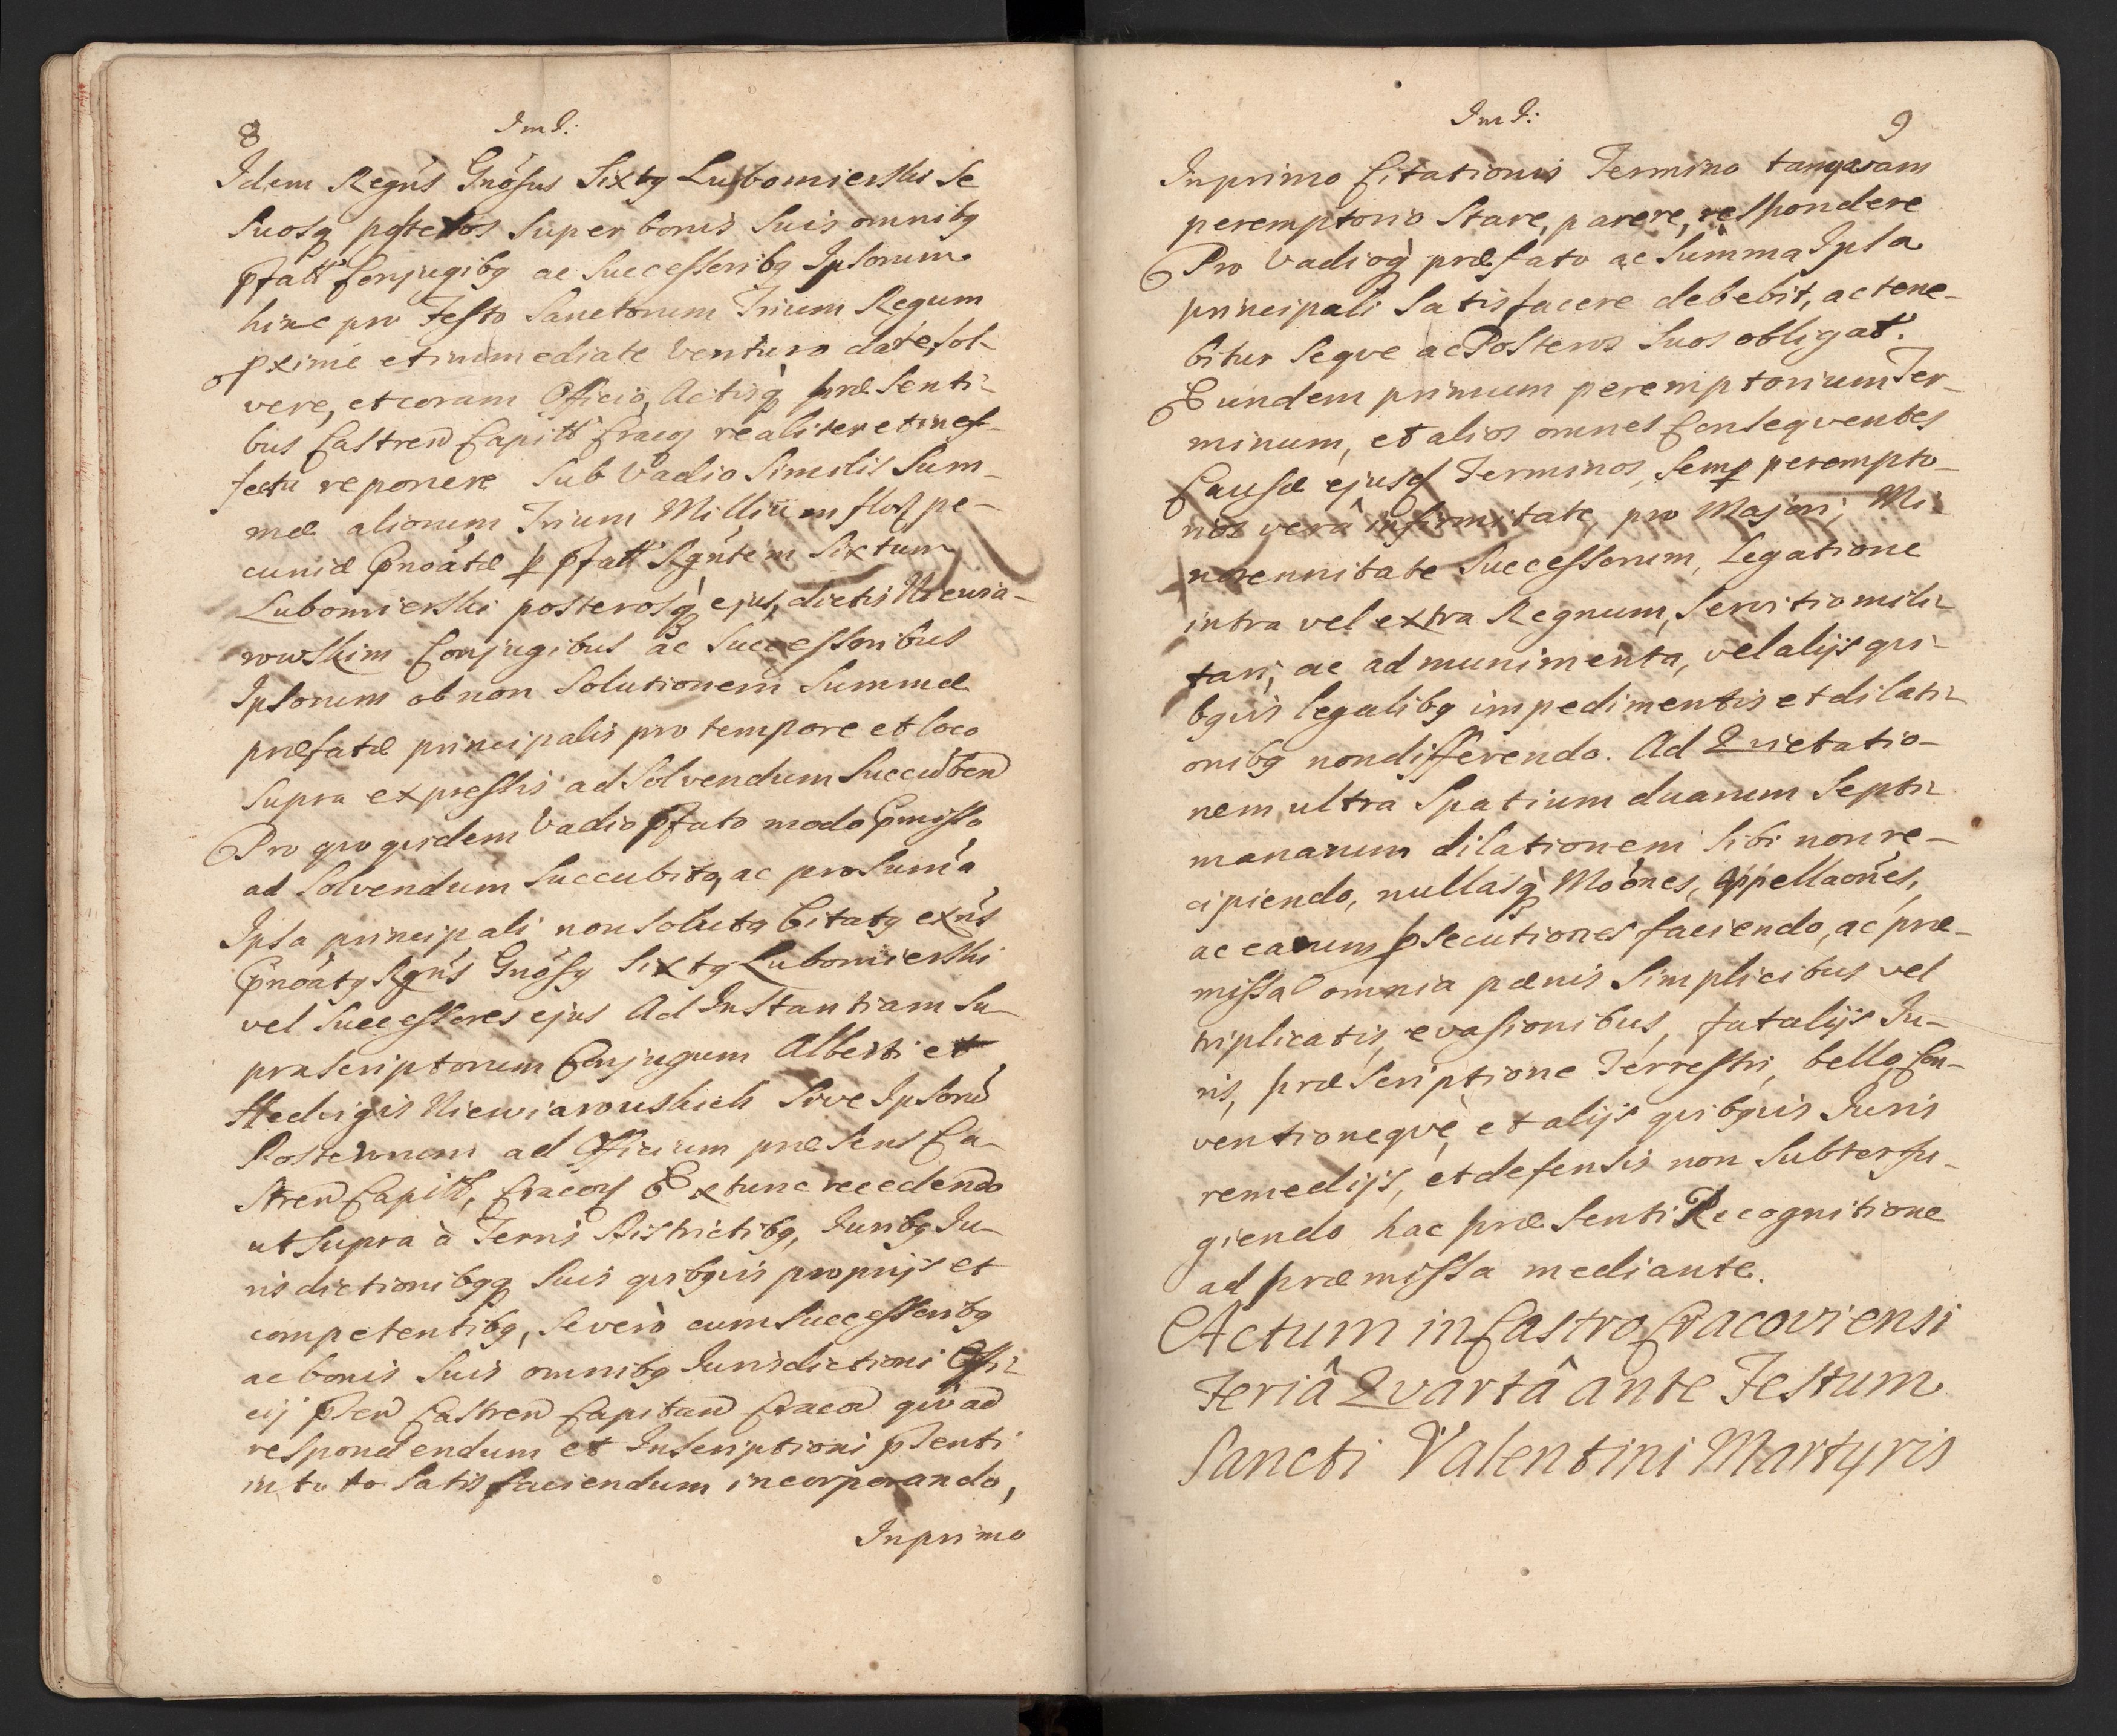 8
Im I:
Idem Regn̄s Gnōsus Sixtq Lubomierski Se
Suosq posteros Super bonis Suis omnibq
pfatt Conjugibq ac Successoribq Ipsorum
hinc pro Festo Sanctorum Trium Regum
pxime et immediate venturo dare, Sol-
vere, et coram Officio, Actisq præsenti-
bus Castren Capitt Cracoꝝ realiter et in ef-
fectu reponere Sub Vadio Similis Sum-
mæ aliorum Trium Millium floꝝ pe-
cuniæ pnoātæ p pfatt Rgn̄tem Sixtum
Lubomierski posterosq ejus, dictis Niewia-
rowskim Conjugibus ac Successoribus
Ipsorum ob non Solutionem Summæ
præfatæ principalis pro tempore et loco
Supra expressis ad Solvendum Succuben
Pro quo quidem Vadio pfato modo pmisso
ad Solvendum Succubitq, ac pro Sum̄a
Ipsa principali non Solutq Citatq exn̄s
pnoātq Rgn̄s Gnōsq Sixtq Lubomierski
vel Successores ejus Ad Instantiam Su-
prascriptorum Conjugum Alberti et
Hedvigis Niewiarowskich Sive Ipsorū
Posterorum ad Officium præsens Ca-
stren Capitt, Cracoꝝ Extunc recedendo
ut Supra à Terris Districtibq, Juribq Ju-
risdictionibqq Suis quibquis proprijs et
competentibq, Severò cum Successoribq
ac bonis Suis omnibq Jurisdictioni Offi-
cij pSen Castren Capitan Cracov quò ad
respondendum et Inscriptioni pSenti
in toto Satisfaciendum incorporando,
Inprimo
Im I:
9
Inprimo Citationis Termino tanquam
peremptorio Stare, parere, respondere
Pro Vadioq præfato ac Summa Ipsa
principali Satisfacere debebit, ac tene-
bitur Seque ac Posteros Suos obligat.
Eundem primum peremptorium Ter-
minum, et alios omnes Consequentes
Causæ ejusd Terminos, Semp perempto-
rios verâ infirmitate, pro Majori, Mi-
norennitate Successorum, Legatione
intra vel extra Regnum, Servitio mili-
tari, ac ad munimenta, vel alijs qui-
bquis legalibq impedimentis et dilati-
onibq non differendo. Ad Quietatio-
nem, ultra Spatium duarum Septi-
manarum dilationem Sibi non re-
cipiendo, nullasq Moōnes, Appellaōnes,
ac earum pSecutiones faciendo, ac præ-
missa omnia pænis Simplicibus vel
triplicatis, evasionibus, fatalijs Ju-
ris, præscriptione Terrestri, bello, Con-
ventioneqve, et alijs quibquis Juris
remedijs, et defensis non Subterfu-
giendo hac præsenti Recognitione
ad præmissa mediante.
Actum in Castro Cracoviensi
Feriâ Qvartâ ante Festum
Sancti Valentini Martyris